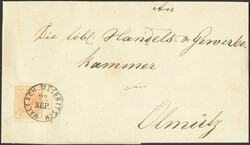 An
Die löbl. Handels & Gewerbe
kammer
in
Olmütz
WALLACH. MESERITSCH
22
SEP.